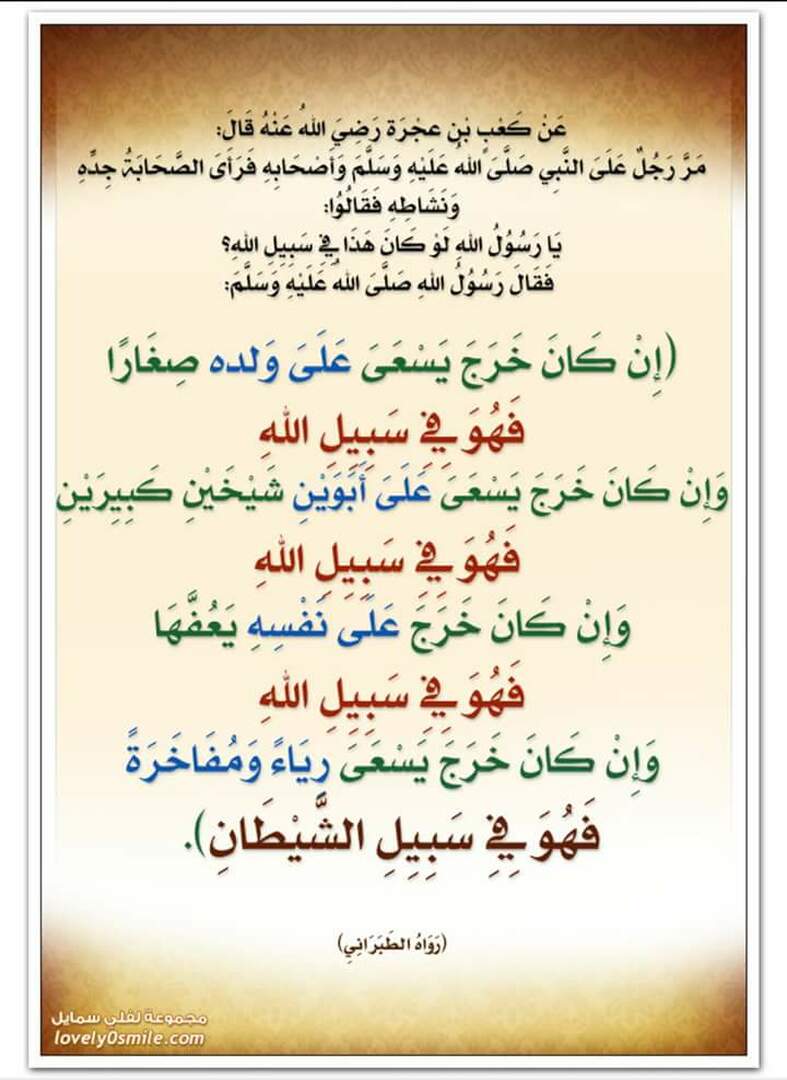 عَنْ كَعْبٍ بْنِ عجْرَة رَضِيَ اللهُ عَنْهُ قَالَ:
مَرَّ رَجُلٌ عَلَىَ النَّبِي صَلَّىَ اللهُ عَلَيْهِ وَسَلَّمَ وَأَصْحَابِهِ فَرَأَىَ الصَّحَابَةُ جِدِّهِ
وَنَشَاطِهِ فَقَالُوُا:
يَا رَسُوُلُ اللهِ لَوْ كَانَ هَذَا فِي سَبِيِلِ اللهِ؟
فَقَالَ رَسُوُلُ اللهِ صَلَّىَ اللهُ عَلَيْهِ وَسَلَّمَ:
(إِنْ كَانَ خَرَجَ يَسْعَىَ عَلَىَ وَلده صِغَارًا
فَهُوَ فِي سَبِيِلِ اللهِ
وَإِنْ كَانَ خَرَجَ يَسْعَىَ عَلَىَ أَبَوَيْنِ شَيْخَيْنِ كَبِيِرَيْنِ
فَهُوَ فِي سَبِيِلِ اللهِ
وَإِنْ كَانَ خَرَجَ عَلَىَ نَفْسِهِ يَعُفَّهَا
فَهُوَ فِي سَبِيِلِ اللهِ
وَإِنْ كَانَ خَرَجَ يَسْعَىَ رِيَاءً وَمُفَاخَرَةً
فَهُوَ فِي سَبِيِلِ الشَّيْطَانِ).
(رَوَاهُ الطَبَرَانِي)
مجموعة لفلي سمايل
lovely0smile.com